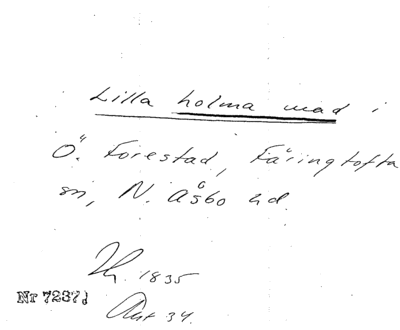 Lilla holma mad i
Ö. Forestad, Färingtofta
sn, N. Åsbo hd.
1835
Akt 34.
Nr 7287